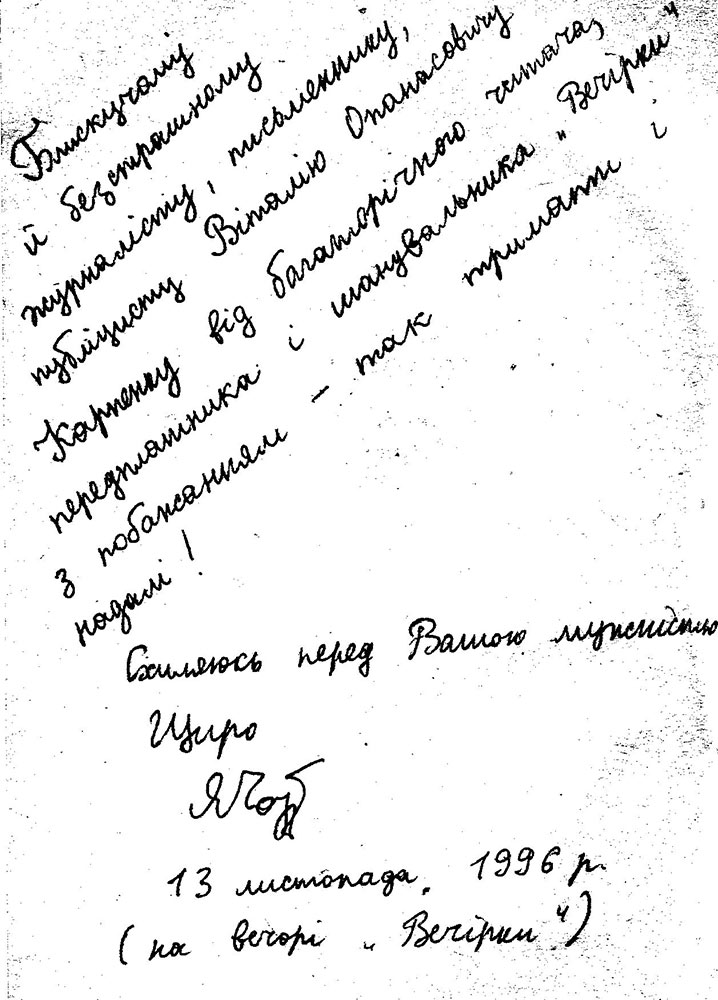 Блискучому
й безстрашному
журналісту, письменнику,
публіцисту Віталію Опанасовичу
Карпенку від багаторічного читача,
передплатника і шанувальника „Вечірки“
з побажанням – так тримати і
надалі!
Схиляюсь перед Вашою мужністю
Щиро
13 листопада, 1996 р.
(на вечорі „Вечірки“)